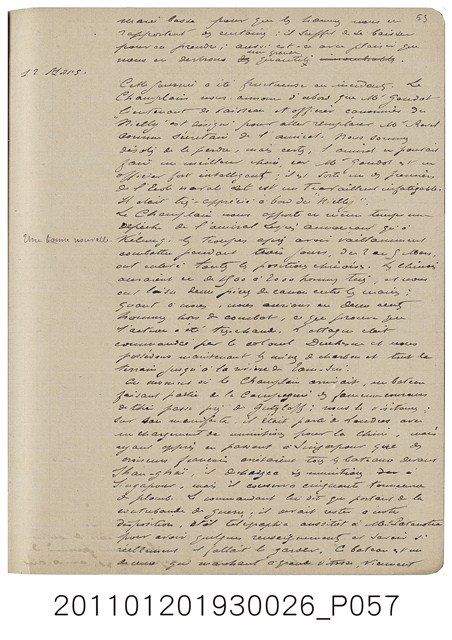 53
marée basse pour que les hommes nous en
rapportent des centaines : il suffit de se baisser
pour en prendre ; aussi est-ce avec plaisir que
nous en destinons une grande quantité
12 Mars.
Cette journée a été fructueuse en incidents. Le
Champlain nous annonce d'abord que Mr Goudot
lieutenant de vaisseau et officier canonnier du
Bielly est désigné pour aller remplacer Mr Ravel
comme secrétaire de l'amiral. Nous sommes
désolés de le perdre, mais certes, l'amiral ne pouvait
faire un meilleur choix, car Mr Goudot est un
officier fort intelligent ; il est sorti un des premiers
de l'École navale et est un travailleur infatigable.
Il était très apprécié à bord du Nielly.
Le Champlain nous apporte en même temps une
Une bonne nouvelle.
dépêche de l'amiral Lespès annonçant qu'à
Kelung, les troupes après avoir vaillamment
combattu pendant trois jours, du 2 au 5 Mars,
ont enlevé toutes les positions chinoises. Les chinois
auraient eu de 1500 à 2000 hommes tués, et nous
ont laissé deux pièces de canon entre les mains ;
quant à nous, nous aurions eu deux cents
hommes hors de combat, ce qui prouve que
l'action a été très chaude. L'attaque était
commandée par le colonel Duchesne et nous
possédons maintenant les mines de charbon et tout le
terrain jusqu'à la rivière de Tam-Sui.
Au moment où le Champlain arrivait, un bateau
faisant partie de la Compagnie des fameux coureurs
de thé passe près de Gutzlaff : nous le visitons ;
sur son manifeste, il était parti de Londres avec
un chargement de munitions pour la Chine, mais
ayant appris en passant à Singapour que des
croiseurs français visitaient tous les bateaux devant
Shang-haï, il déchargea ses munitions à
Singapour, mais il conserva cinquante tonneaux
de plomb. Le commandant lui dit que portant de la
contrebande de guerre, il avait resté à notre
disposition, et il télégraphia aussitôt à Mr Patenôtre
pour avoir quelques renseignements et savoir si
réellement il fallait le garder. Ce bateau est un
de ceux qui marchant à grande vitesse, viennent
201101201930026_P057